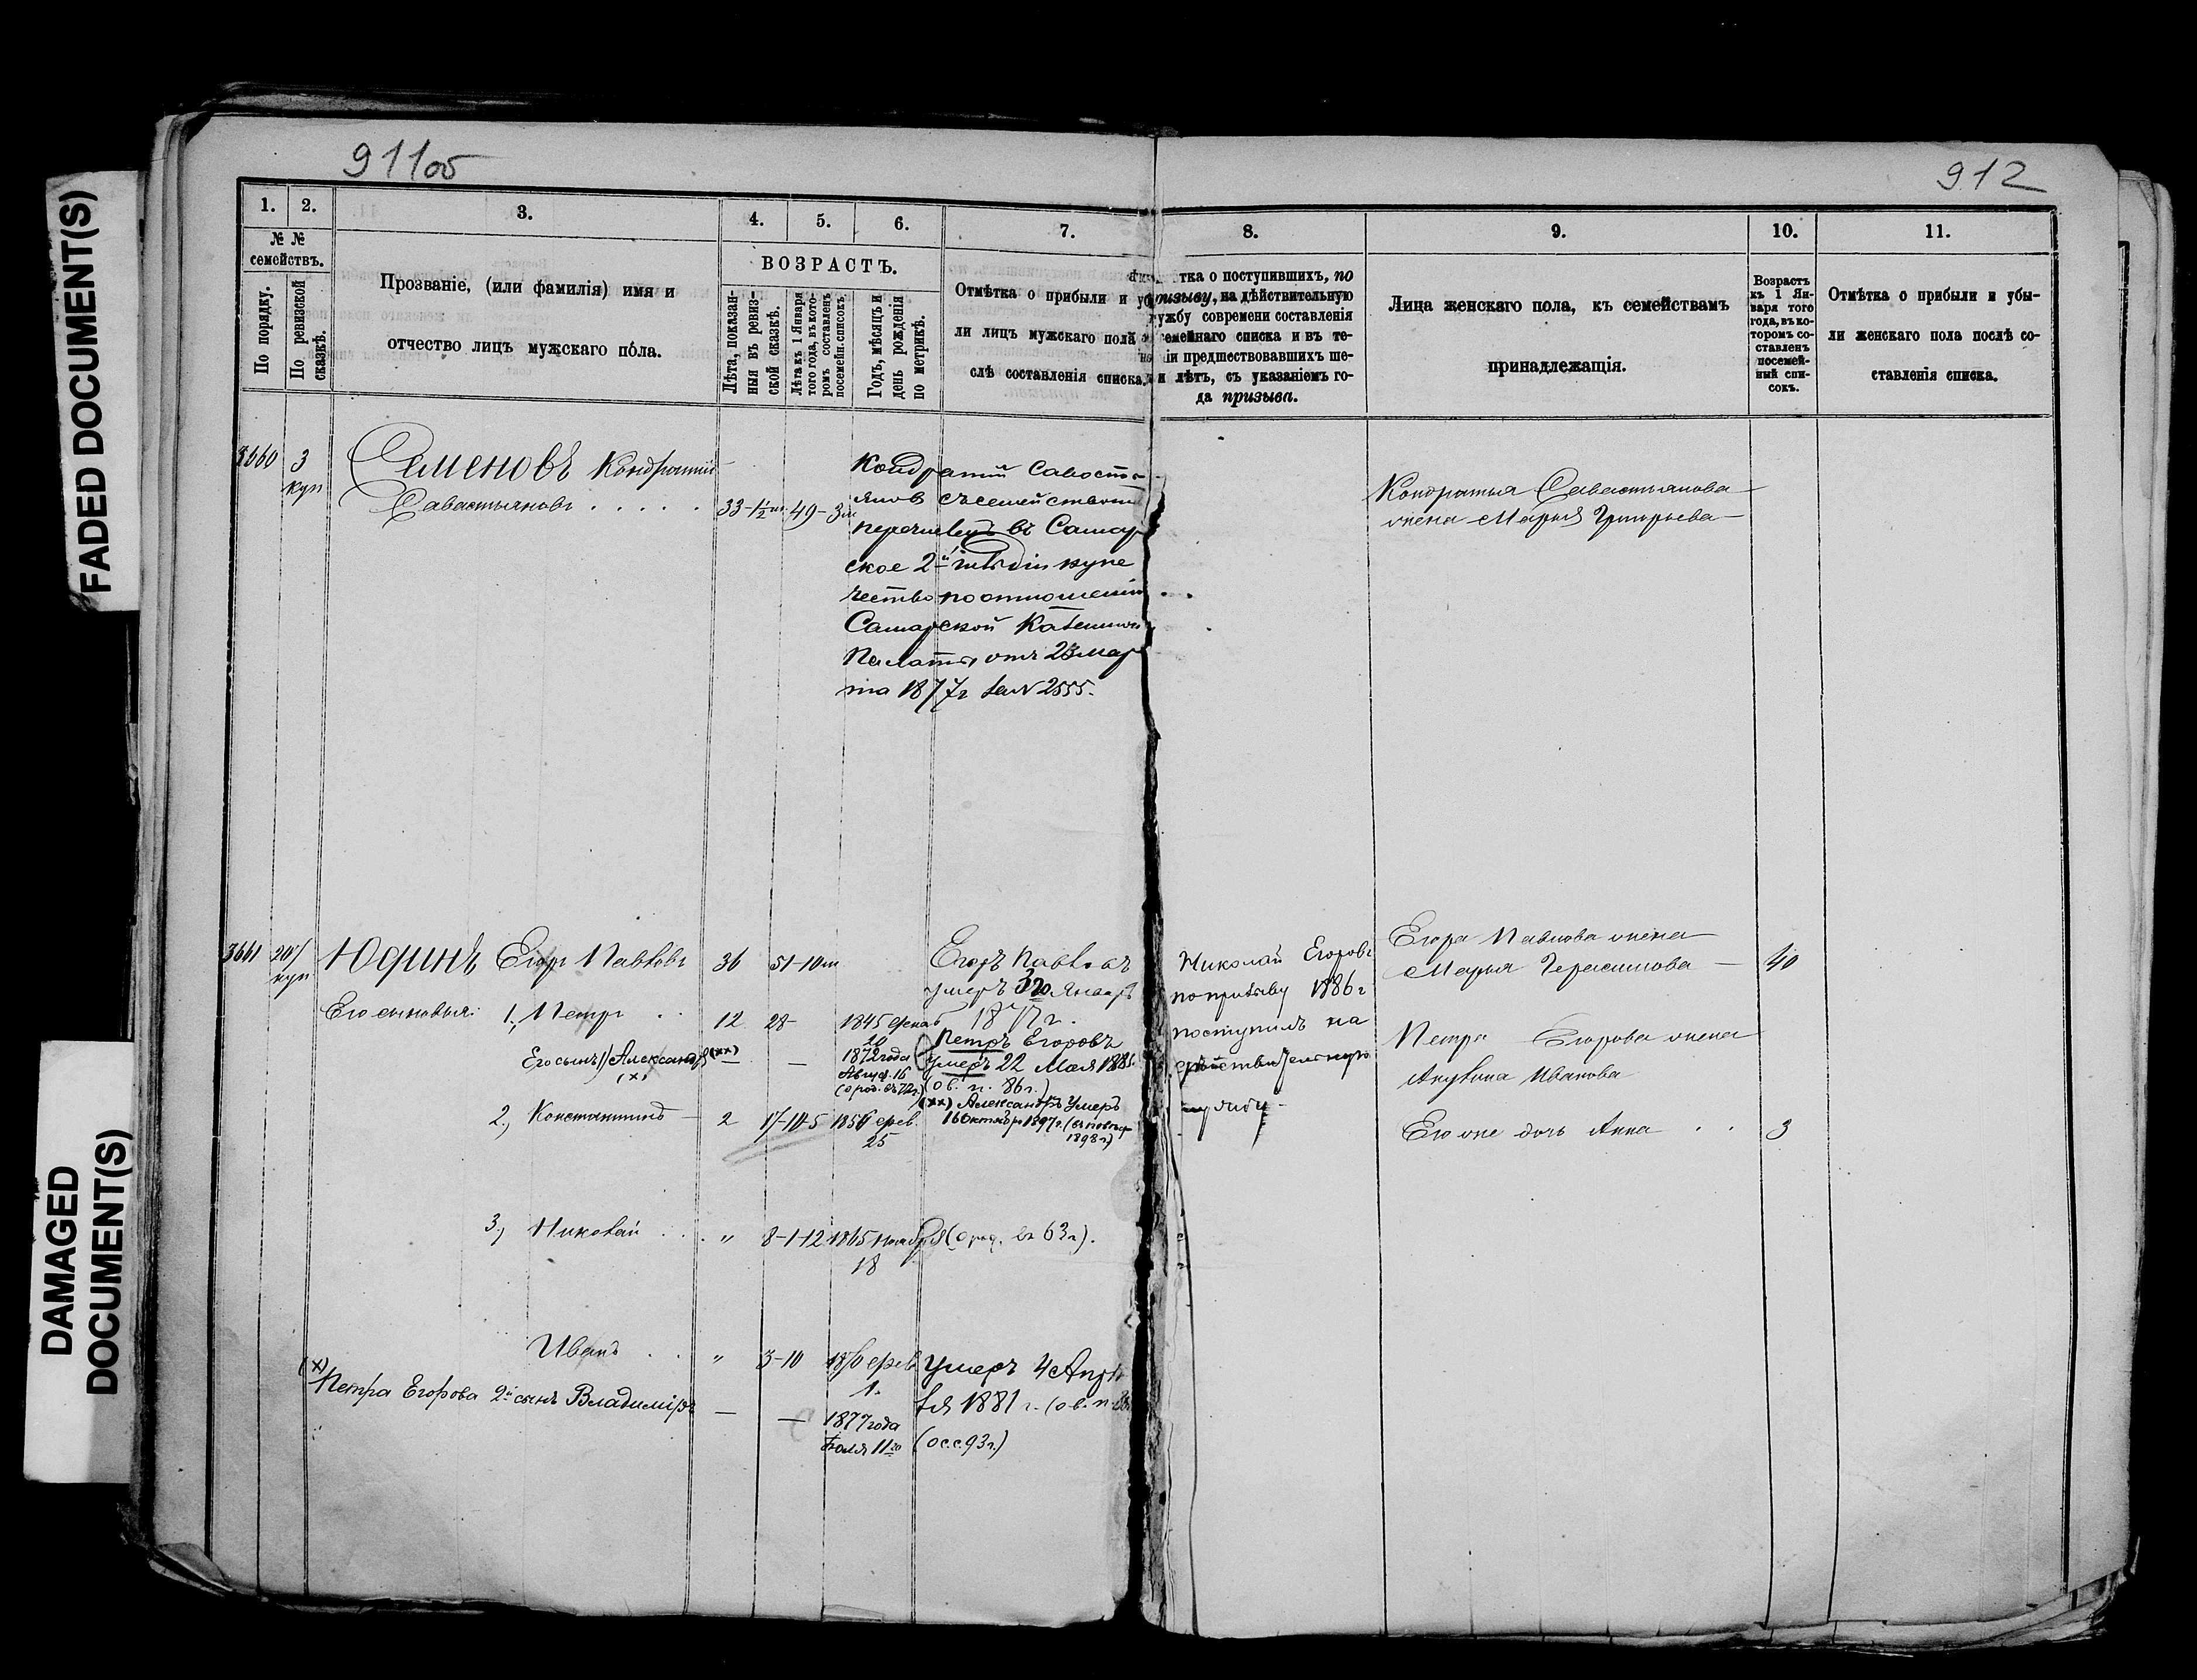 911об
912
FADED DOCUMENT(S)
DAMAGED
DOCUMENT(S)
1.
2.
3.
4.
5.
6.
7.
8.
9.
10.
11.
№ №
семействъ.
По порядку.
По ревизской
сказкѣ.
Прозваніе, (или фамилія) имя и
отчество лицъ мужскаго пола.
ВОЗРАСТЪ.
Лѣта, показан-
ныя въ ревиз-
ской сказкѣ.
Лѣта къ 1 Января
того года, въ кото-
ромъ составленъ
посемейн. списокъ.
Годъ, мѣсяцъ и
день рожденія
по метрикѣ.
Отмѣтка о прибыли и уб
ли лицъ мужскаго пола
слѣ составленія списка.
тка о поступившихъ, по
ризыву, на дѣйствительную
ужбу современи составленія
емейнаго списка и въ те-
іи предшествовавшихъ ше-
и лѣтъ, съ указаніемъ го-
да призыва.
Лица женскаго пола, къ семействамъ
принадлежащія.
Возрастъ
къ 1 Ян-
варя того
года, въ ко-
торомъ со-
ставленъ
посемей-
ный спи-
сокъ.
Отмѣтка о прибыли и убы-
ли женскаго пола послѣ со-
ставленія списка.
3660
3
куп
Семеновъ Кондратій
Савастьяновъ . . . . .
33-½
49-3м
Кондратій Савостья
янов съ семейством
перечислен въ Самар
ское 2й гильдіи купе
чество по отношенію
Самарской Казенной
Палаты отъ 23 мар
та 1877г за № 2555.
Кондратья Савастьянова
жена Марья Григорьева —
3661
207
куп
Юдинъ Егоръ Павловъ
36
51-10м
Егоръ Павловъ
умеръ Января
1877г.
Николай Егоровъ
по призыву 1886г
поступилъ на
дѣйствительную
службу
Егора Павлова жена
Марья Герасимова —
40
Его сыновья: 1., Петръ . .
12
28-
1845
20
Петръ Егоровъ
умеръ 22 Мая
(об. п. 86г.)
Петра Егорова жена
Акулина Иванова
Его сынъ 1) Александръ (хх)
(х)
—
—
1872 года
Август. 16
(о род. въ 72г.)
(хх) Александръ умеръ
16 октябр 1897г.
1898г)
2., Константинъ —
2
17-10-5
1856 фев.
25
Его же дочь Анна . .
3
3., Николай . . .
"
8-1-12
1865 ноября (о род. въ 63г).
18
Иванъ . .
"
3-10
1870 фев.
1.
Умеръ 4 Апрѣ
ля 1881 г. (об. п.
(х)
Петра Егорова 2й сынъ Владиміръ
—
—
1877 года
Іюля 11го
(о с.с. 93г.)